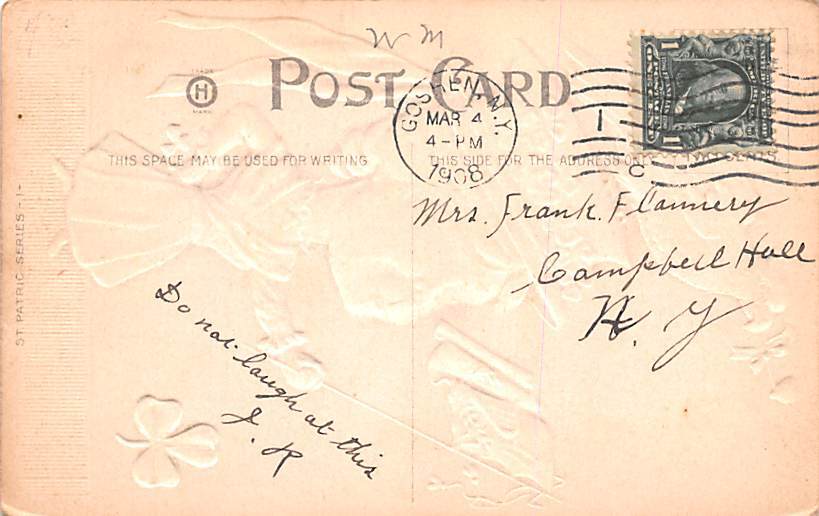 W M
TRADE
H
MARK
POST CARD
GOSHEN, N.Y.
MAR 4
4-PM
1908
1
1
THIS SPACE MAY BE USED FOR WRITING
THIS SIDE FOR THE ADDRESS ONLY
Mrs. Frank. Flannery
Campbell Hall
N. Y
Do not laugh at this
J. R
ST PATRIC SERIES -1-